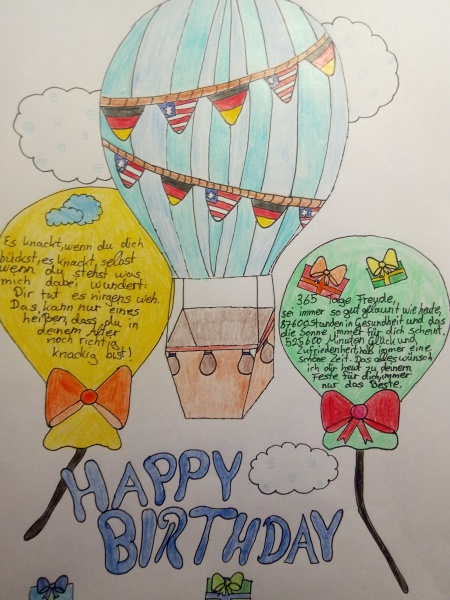 Es knackt, wenn du dich
bückst, es knackt, selbst
wenn du stehst was
mich dabei wundert:
Dir tut es nirgens weh.
Das kann nur eines
heißen, dass du in
deinem Alter
noch richtig
knackig bist!
365 Tage Freude,
sei immer so gut gelaunt wie heute,
87600 Stunden in Gesundheit und das
die Sonne immer für dich scheint.
525600 Minuten Glück und
Zufriedenheit, hab immer eine
schöne Zeit. Das alles wünsch
ich dir heut zu deinem
Feste für dich immer
nur das Beste.
HAPPY
BIRTHDAY